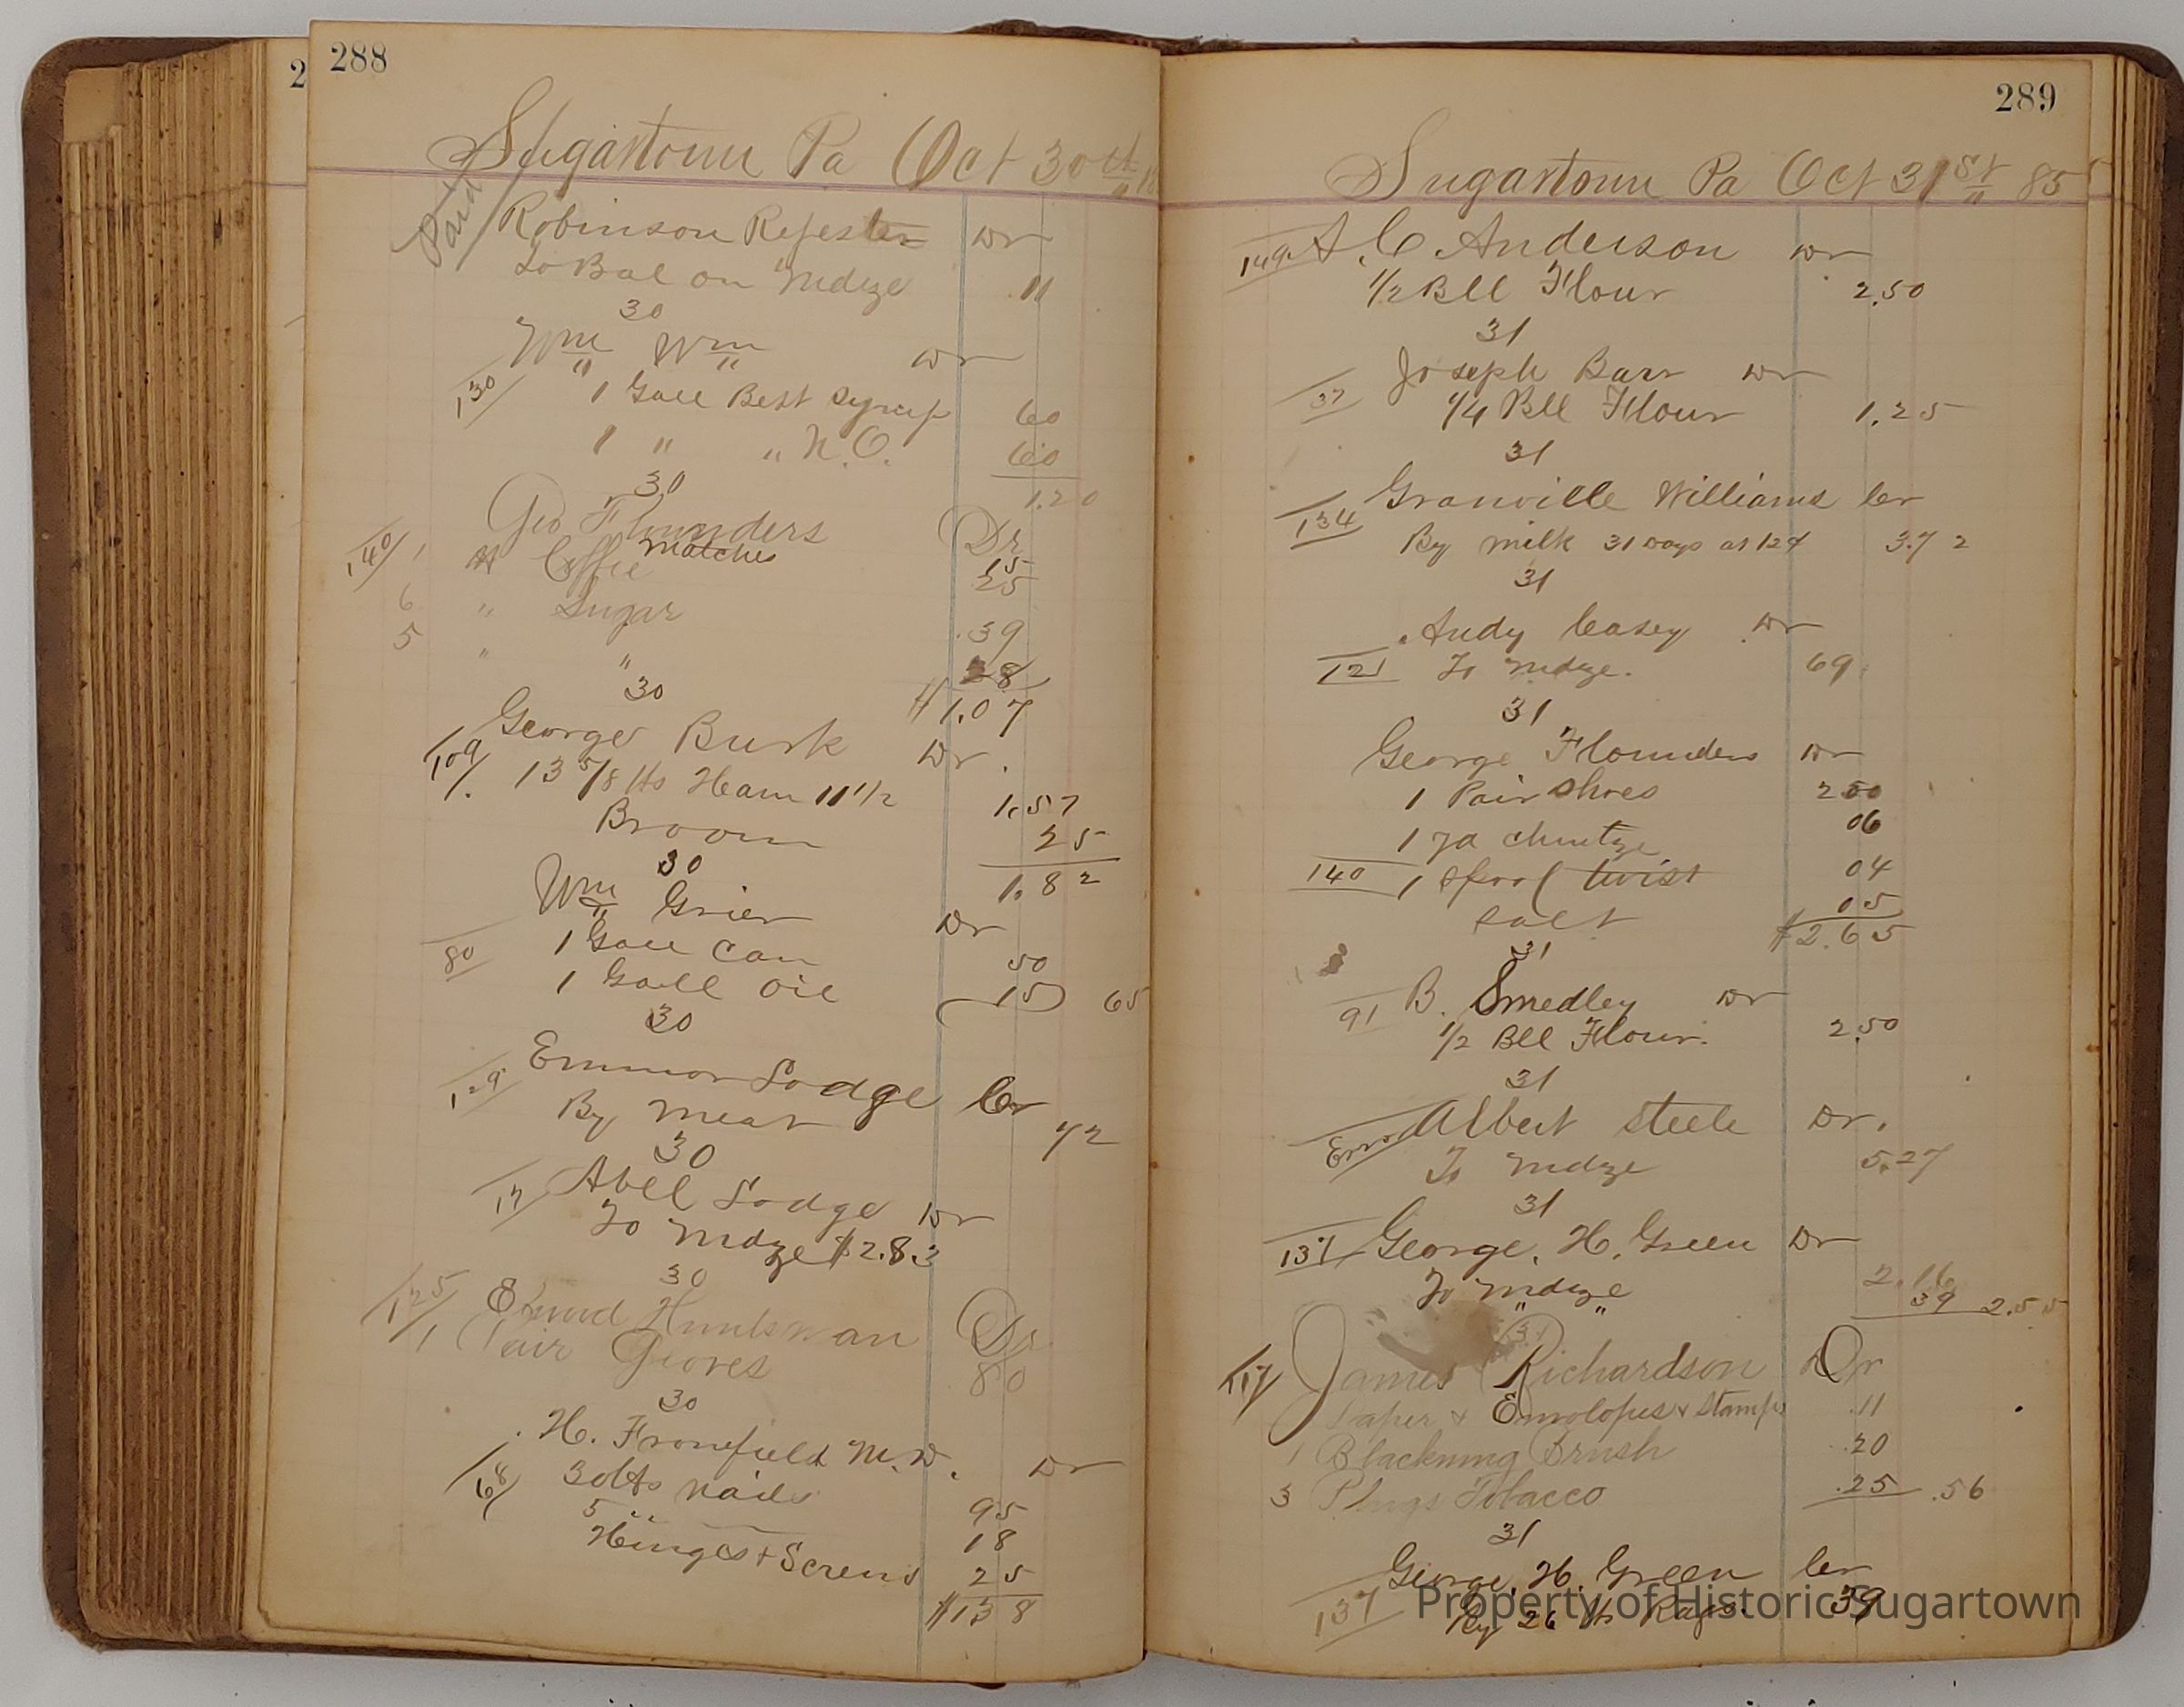 2
288
Sugartown Pa Oct 30th
Paid
Robinson Dr
To Bal on Mdze 11
30
Wm Wm Dr
130
1 Gall Best Syrup 60
1 " " N.O. 60
1.20
30
Geo Flounders Dr
140
matches 15
1 lb Coffee 25
6 " Sugar .39
5 " " 28
$1.07
30
George Burk Dr.
109
13 5/8 lbs Ham 11 1/2 1.57
Broom 25
1.82
30
Wm Grier Dr
80
1 Gall Can 50
1 Gall Oil 15 65
30
Emmor Lodge Cr
129
By Meat 42
30
17 Abel Lodge Dr
To Mdze $2.83
30
125
Edward Huntsman Dr
1 Pair Gloves 80
30
H. Fronefield M.D. Dr
68
30 lbs nails 95
5 " 18
Hinges & Screws 25
$138
289
Sugartown Pa Oct 31st 85
149 A. C. Anderson Dr
1/2 Bll Flour 2.50
31
Joseph Barr Dr
37
1/4 Bll Flour 1.25
31
Granville Williams Cr
134
By milk 31 Days at 12¢ 3.72
31
Andy Casey Dr
121 To Mdze. 69
31
George Flounders Dr
1 Pair Shoes 2.50
1 yd chintze 06
140 1 Spool twist 04
Salt 05
$2.65
31
91 B. Smedley Dr
1/2 Bll Flour. 2.50
31
Albert Steele Dr.
To Mdze 5.27
31
137 George. H. Green Dr
To Mdze 2.16
" " 39 2.55
31
117 James Richardson Dr
Paper & Envolopes & Stamps .11
1 Blackning Brush .20
3 Plugs Tobacco .25 .56
31
George. H. Green Cr
137 By 26 lbs Rags. 39
Property of Historic Sugartown